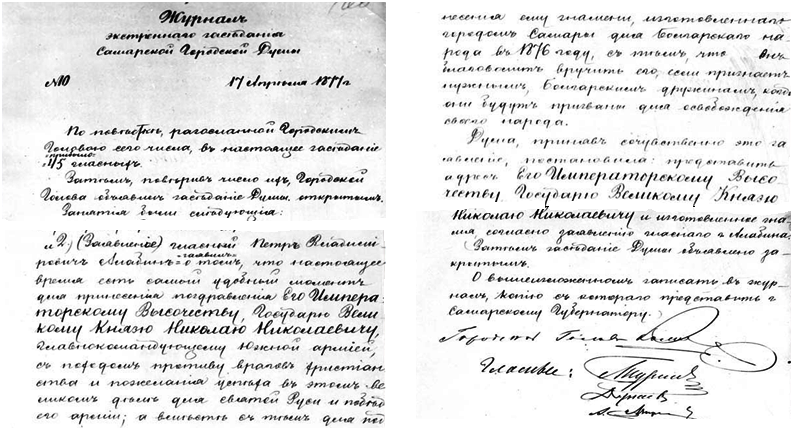 Журналъ
экстреннаго засѣданія
Самарской Городской Думы
№10 17 Апрѣля 1877 г
По повѣсткѣ, разосланной Городскимъ
Головою сего числа, въ настоящее засѣданіе
прибыло
45 гласныхъ.
Затѣмъ, повѣривъ число ихъ, Городской
Голова объявилъ засѣданіе Думы открытымъ.
Занятія были слѣдующія:
2) (Заявленіе) гласный Петръ Владимі-
ровичъ Алабинъ о томъ, что настоящее
заявилъ
время есть самый удобный моментъ
для принесенія поздравленія Его Импера-
торскому Высочеству, Государю Вели-
кому Князю Николаю Николаевичу,
Главнокомандующему Южной арміей,
съ походомъ противу враговъ христіан-
ства и пожеланія успѣха въ этомъ ве-
ликомъ дѣлѣ для святой Руси и побѣдъ
его арміи; а вмѣстѣ съ тѣмъ для под
несенія ему знамени, изготовленнаго
городомъ Самары для Болгарскаго на-
рода въ 1876 году, съ тѣмъ, что онъ
благоволитъ вручить его, если признаетъ
нужнымъ, Болгарскимъ дружинамъ, когда
они будутъ призваны для освобожденія
своего народа.
Дума, принявъ сочувственно это за
явленіе, постановила: представить
адресъ Его Императорскому Высо-
честву Государю Великому Князю
Николаю Николаевичу и изготовленное зна-
мя, согласно заявленію гласнаго г. Алабина.
Затѣмъ засѣданіе Думы объявлено за-
крытымъ.
О вышеизложенномъ записать въ жур-
налъ, копію съ котораго представить г.
Самарскому Губернатору.
Городской Голова
Гласные: